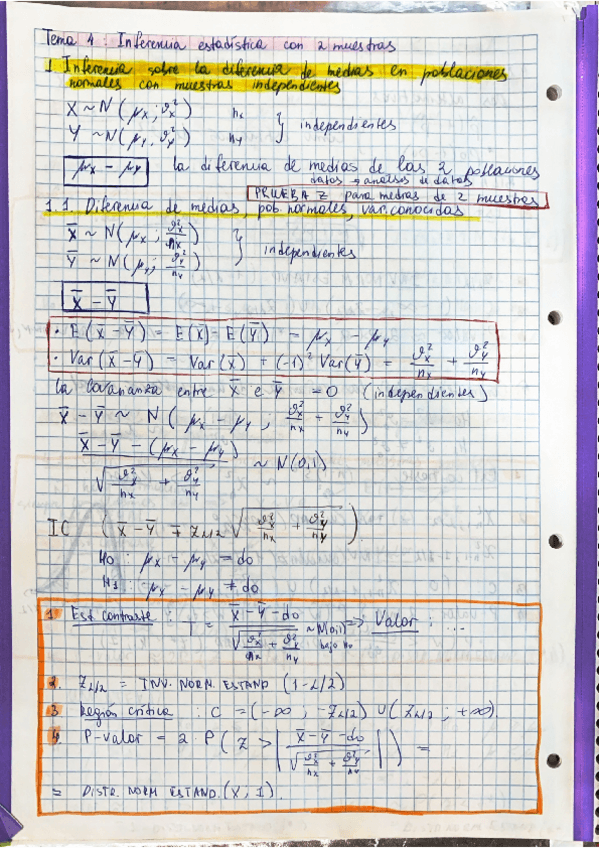 Tema 4: Inferencia estadística con 2 muestras
1 Inferencia sobre la diferencia de medias en poblaciones
normales con muestras independientes
X ~ N(μx; σx²) nx
Y ~ N(μy, σy²) ny } independientes
μx - μy la diferencia de medias de las 2 poblaciones
datos → análisis de datos
PRUEBA Z para medias de 2 muestras
1.1. Diferencia de medias, pob. normales, var. conocidas
X̄ ~ N(μx; σx²/nx)
Ȳ ~ N(μy; σy²/ny) } independientes
X̄ - Ȳ
• E(X̄ - Ȳ) = E(X̄) - E(Ȳ) = μx - μy
• Var(X̄ - Ȳ) = Var(X̄) + (-1)² Var(Ȳ) = σx²/nx + σy²/ny
la covarianza entre X̄ e Ȳ = 0 (independientes)
X̄ - Ȳ ~ N(μx - μy; σx²/nx + σy²/ny)
X̄ - Ȳ - (μx - μy) / √(σx²/nx + σy²/ny) ~ N(0,1)
IC (X̄ - Ȳ ∓ Zα/2 √(σx²/nx + σy²/ny))
H0: μx - μy = d0
H1: μx - μy ≠ d0
1 Est. contraste: T = X̄ - Ȳ - d0 / √(σx²/nx + σy²/ny) ~ N(0,1) bajo H0 => Valor: ...
2. Zα/2 = INV. NORM. ESTAND (1-α/2)
3 Región crítica: C = (-∞; -Zα/2) ∪ (Zα/2; +∞).
4. P-valor = 2·P(Z > |X̄ - Ȳ - d0 / √(σx²/nx + σy²/ny)|) =
= DISTR. NORM ESTAND. (X, 1).